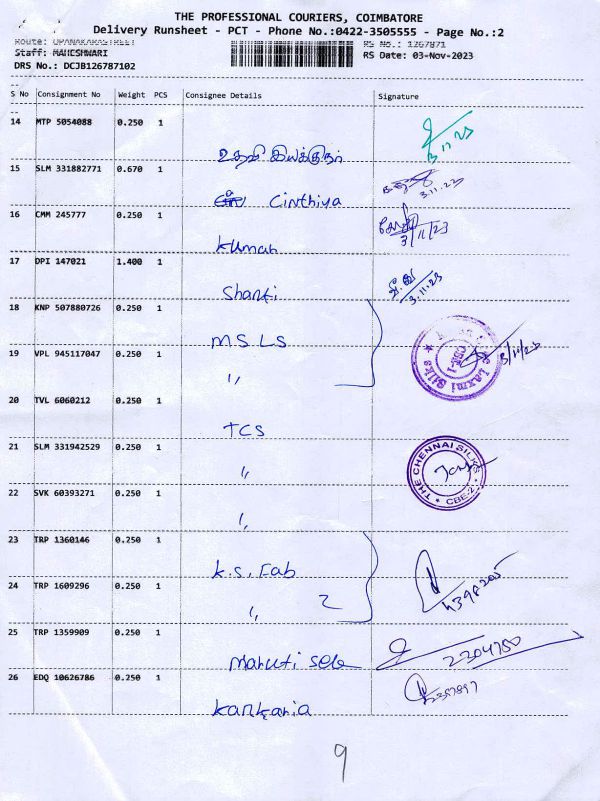 THE PROFESSIONAL COURIERS, COIMBATORE
Delivery Runsheet - PCT - Phone No.:0422-3505555 - Page No.:2
Route: UPANAKARASTREET RS No.: 1267871
Staff: MAHESHWARI RS Date: 03-Nov-2023
DRS No.: DCJB126787102
S No Consignment No Weight PCS Consignee Details Signature
14 MTP 5054088 0.250 1
3.11.23
15 SLM 331882771 0.670 1
Cinthiya 3.11.23
16 CMM 245777 0.250 1
Kumar 3/11/23
17 DPI 147021 1.400 1
Shanti 3.11.23
18 KNP 507880726 0.250 1
M S LS
Laxmi Silks
3/11/23
19 VPL 945117047 0.250 1
"
20 TVL 6060212 0.250 1
TCS
21 SLM 331942529 0.250 1
"
THE CHENNAI SILKS
CBE-2
22 SVK 60393271 0.250 1
"
23 TRP 1360146 0.250 1
K.S. Fab
24 TRP 1609296 0.250 1
" 2
25 TRP 1359909 0.250 1
Maruti 2204750
26 EDQ 10626786 0.250 1
Kankaria
9